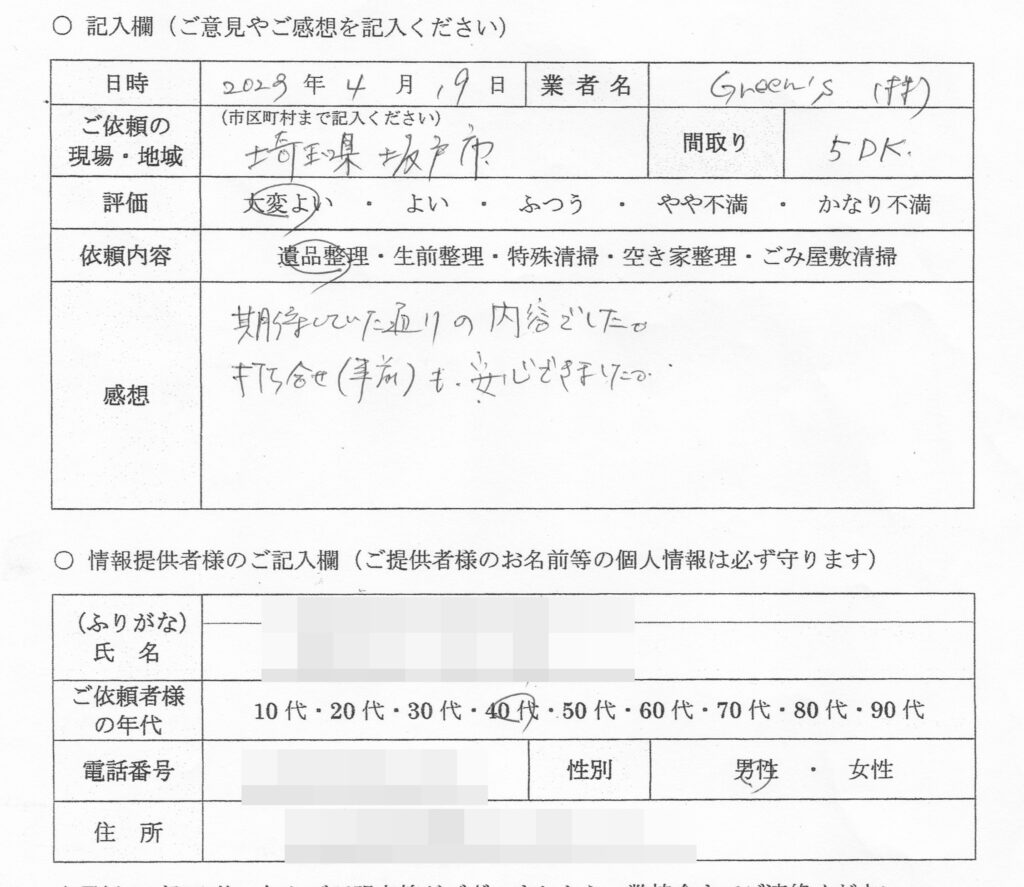 ○ 記入欄（ご意見やご感想を記入ください）
日時 2023年 4月 19日 業者名 Green's (株)
ご依頼の現場・地域 （市区町村まで記入ください） 埼玉県 坂戸市 間取り 5DK.
評価 大変よい ・ よい ・ ふつう ・ やや不満 ・ かなり不満
依頼内容 遺品整理・生前整理・特殊清掃・空き家整理・ごみ屋敷清掃
感想
期待していた通りの内容でした。
打ち合せ(事前)も、安心できました。
○ 情報提供者様のご記入欄（ご提供者様のお名前等の個人情報は必ず守ります）
（ふりがな）
氏 名
ご依頼者様の年代 10代・20代・30代・40代・50代・60代・70代・80代・90代
電話番号 性別 男性 ・ 女性
住 所